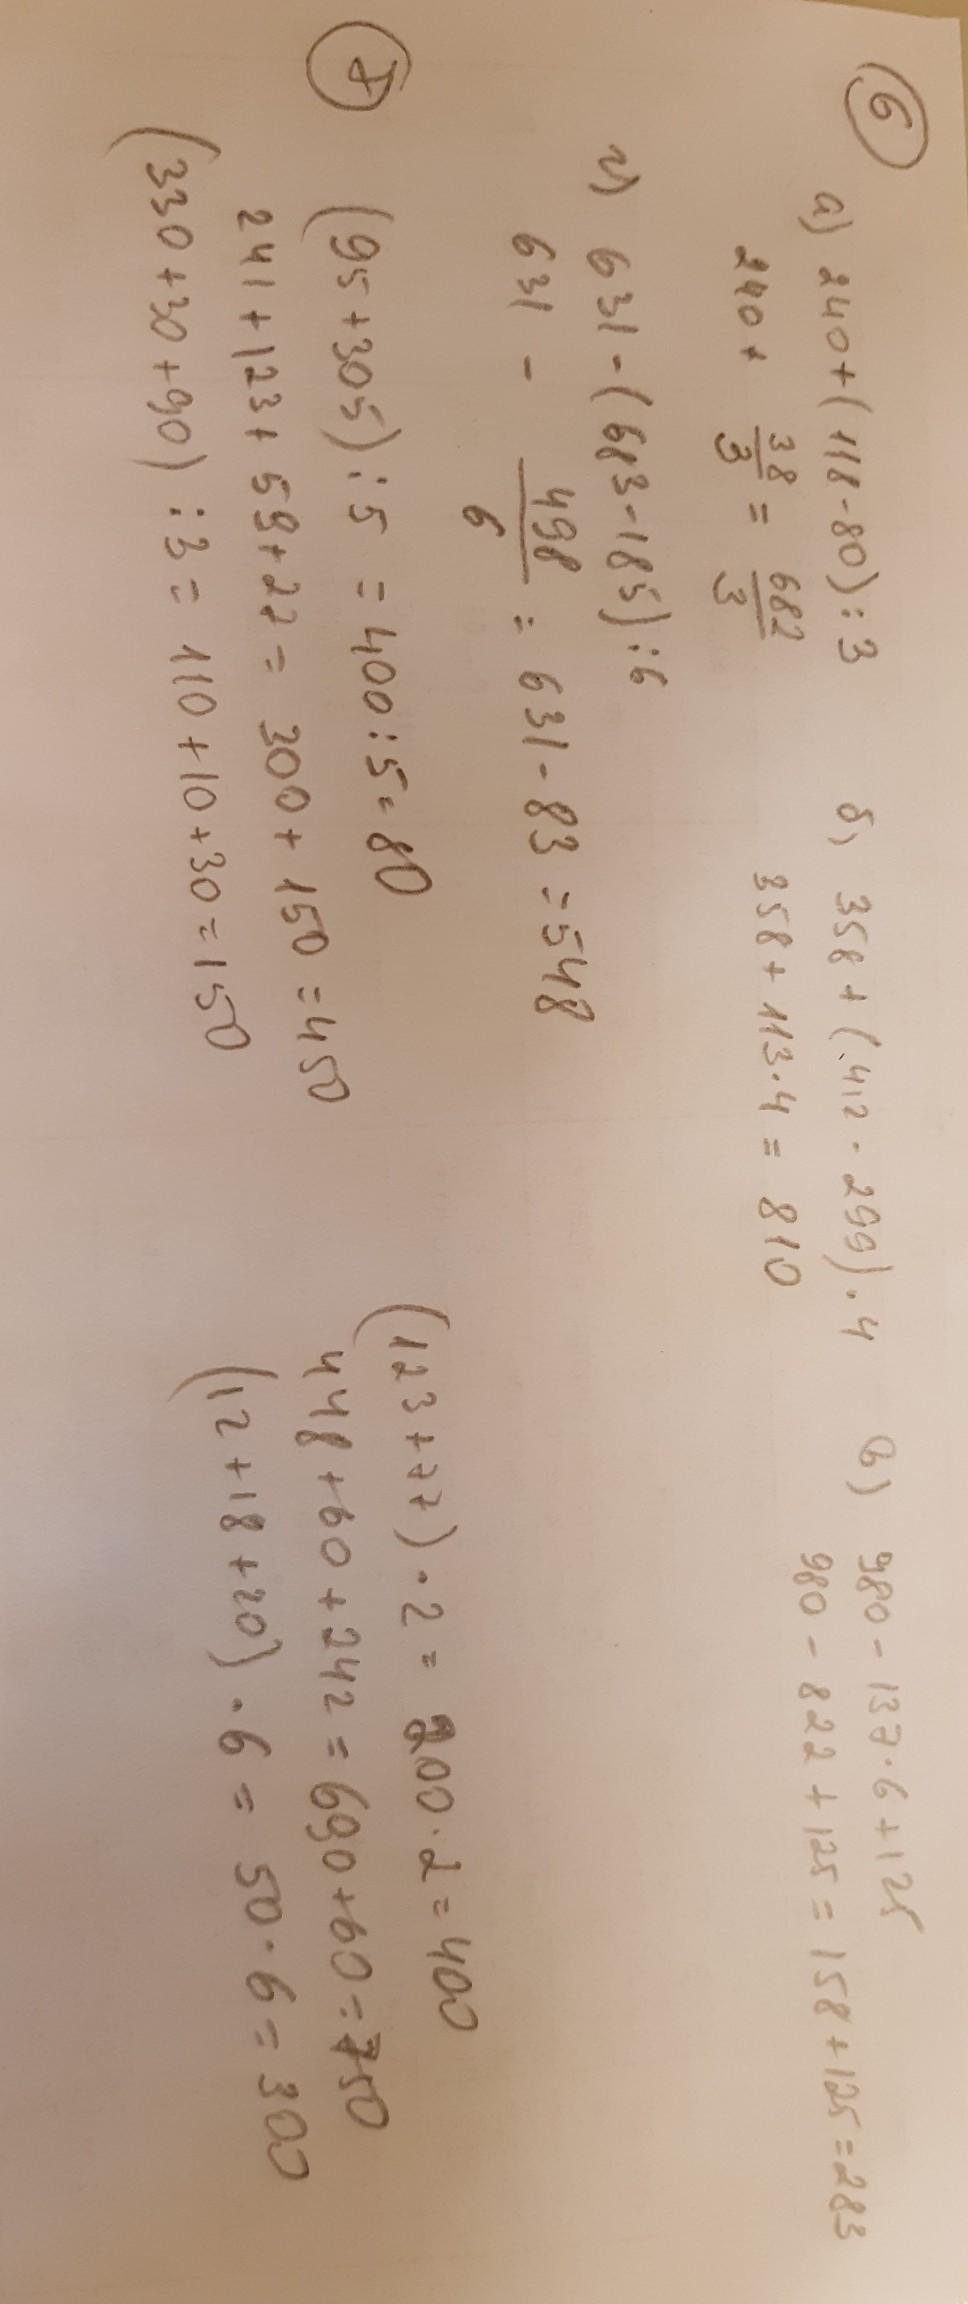 6
а) 240+(118-80):3
240+ 38/3 = 682/3
б) 358+(412-299)·4
358+113·4=810
в) 980-137·6+125
980-822+125=158+125=283
г) 631-(683-185):6
631 - 498/6 = 631-83=548
7
(95+305):5=400:5=80
241+123+59+27=300+150=450
(330+30+90):3=110+10+30=150
(123+77)·2=200·2=400
448+60+242=690+60=750
(12+18+20)·6=50·6=300